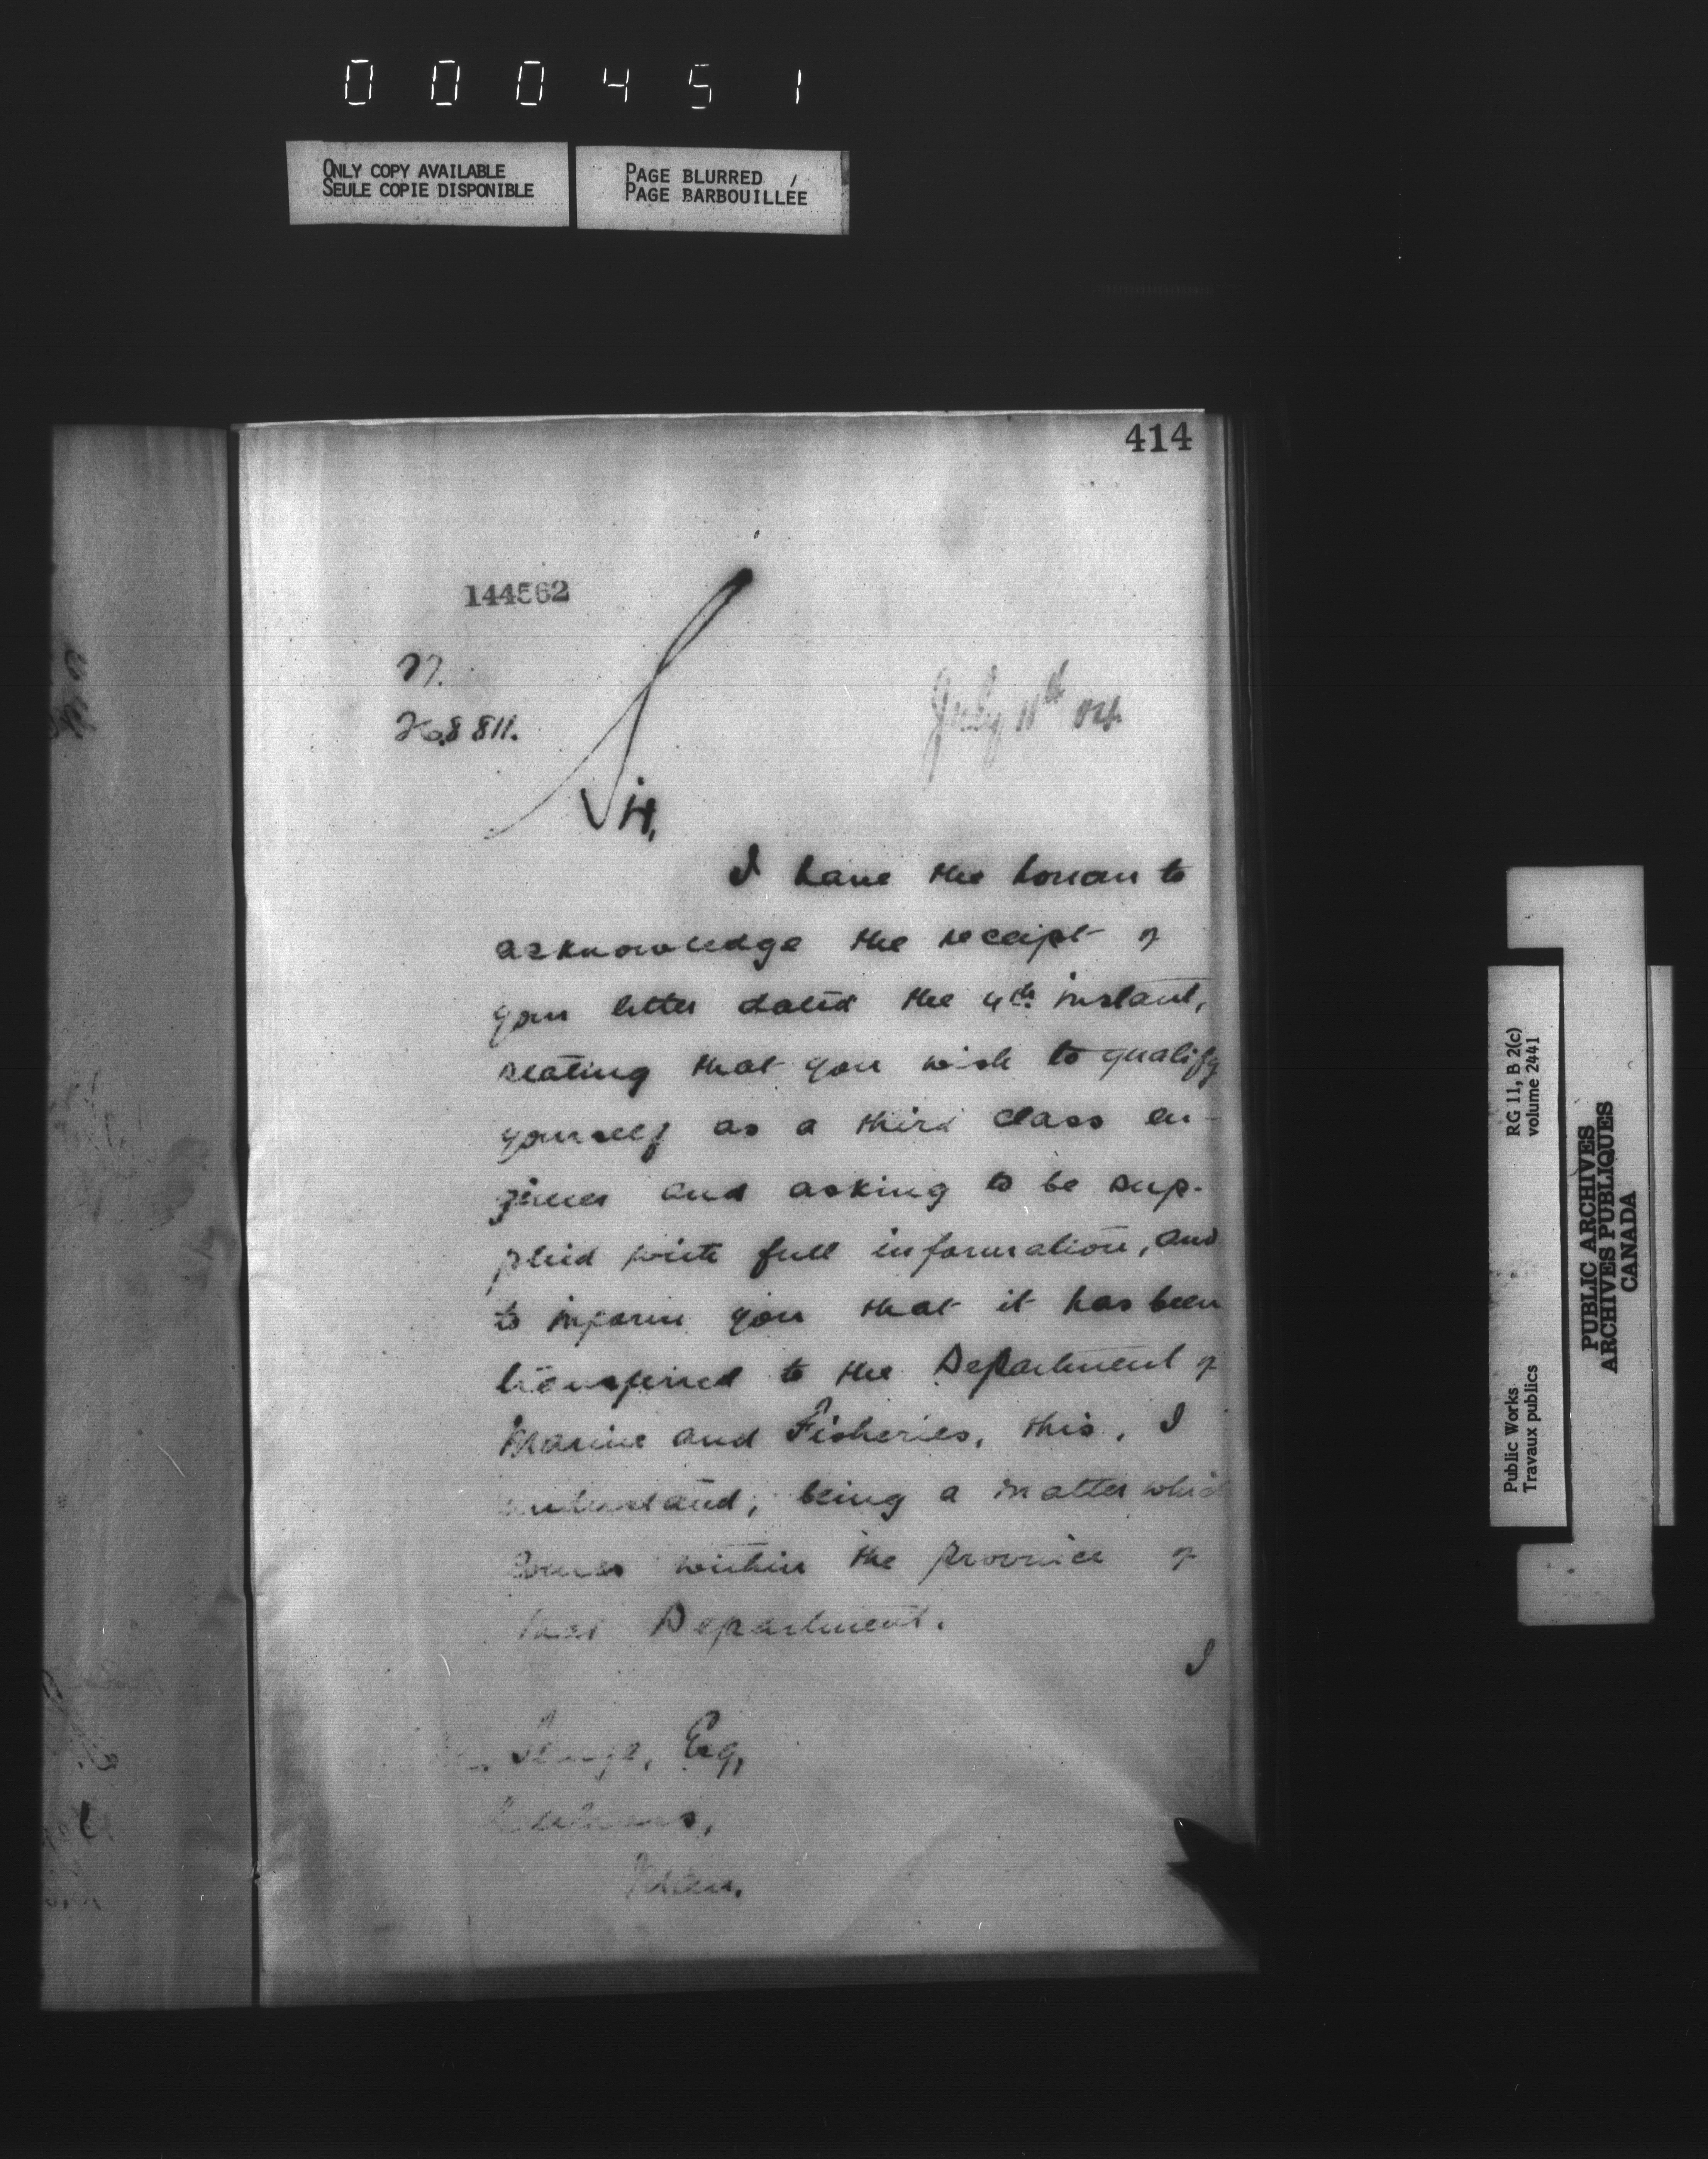 000451
ONLY COPY AVAILABLE
SEULE COPIE DISPONIBLE
PAGE BLURRED
PAGE BARBOUILLÉE
414
144562
July 11th 84.
Sir,
I have the honour to
acknowledge the receipt of
your letter dated the 4th instant,
stating that you wish to qualify
yourself as a third class en-
gineer and asking to be sup-
plied with full information, and
to inform you that it has been
transferred to the Department of
Marine and Fisheries, this, I
understand, being a matter which
comes within the province of
that Department.
I
Esq,
Public Works
Travaux publics
RG 11, B 2(c)
volume 2441
PUBLIC ARCHIVES
ARCHIVES PUBLIQUES
CANADA